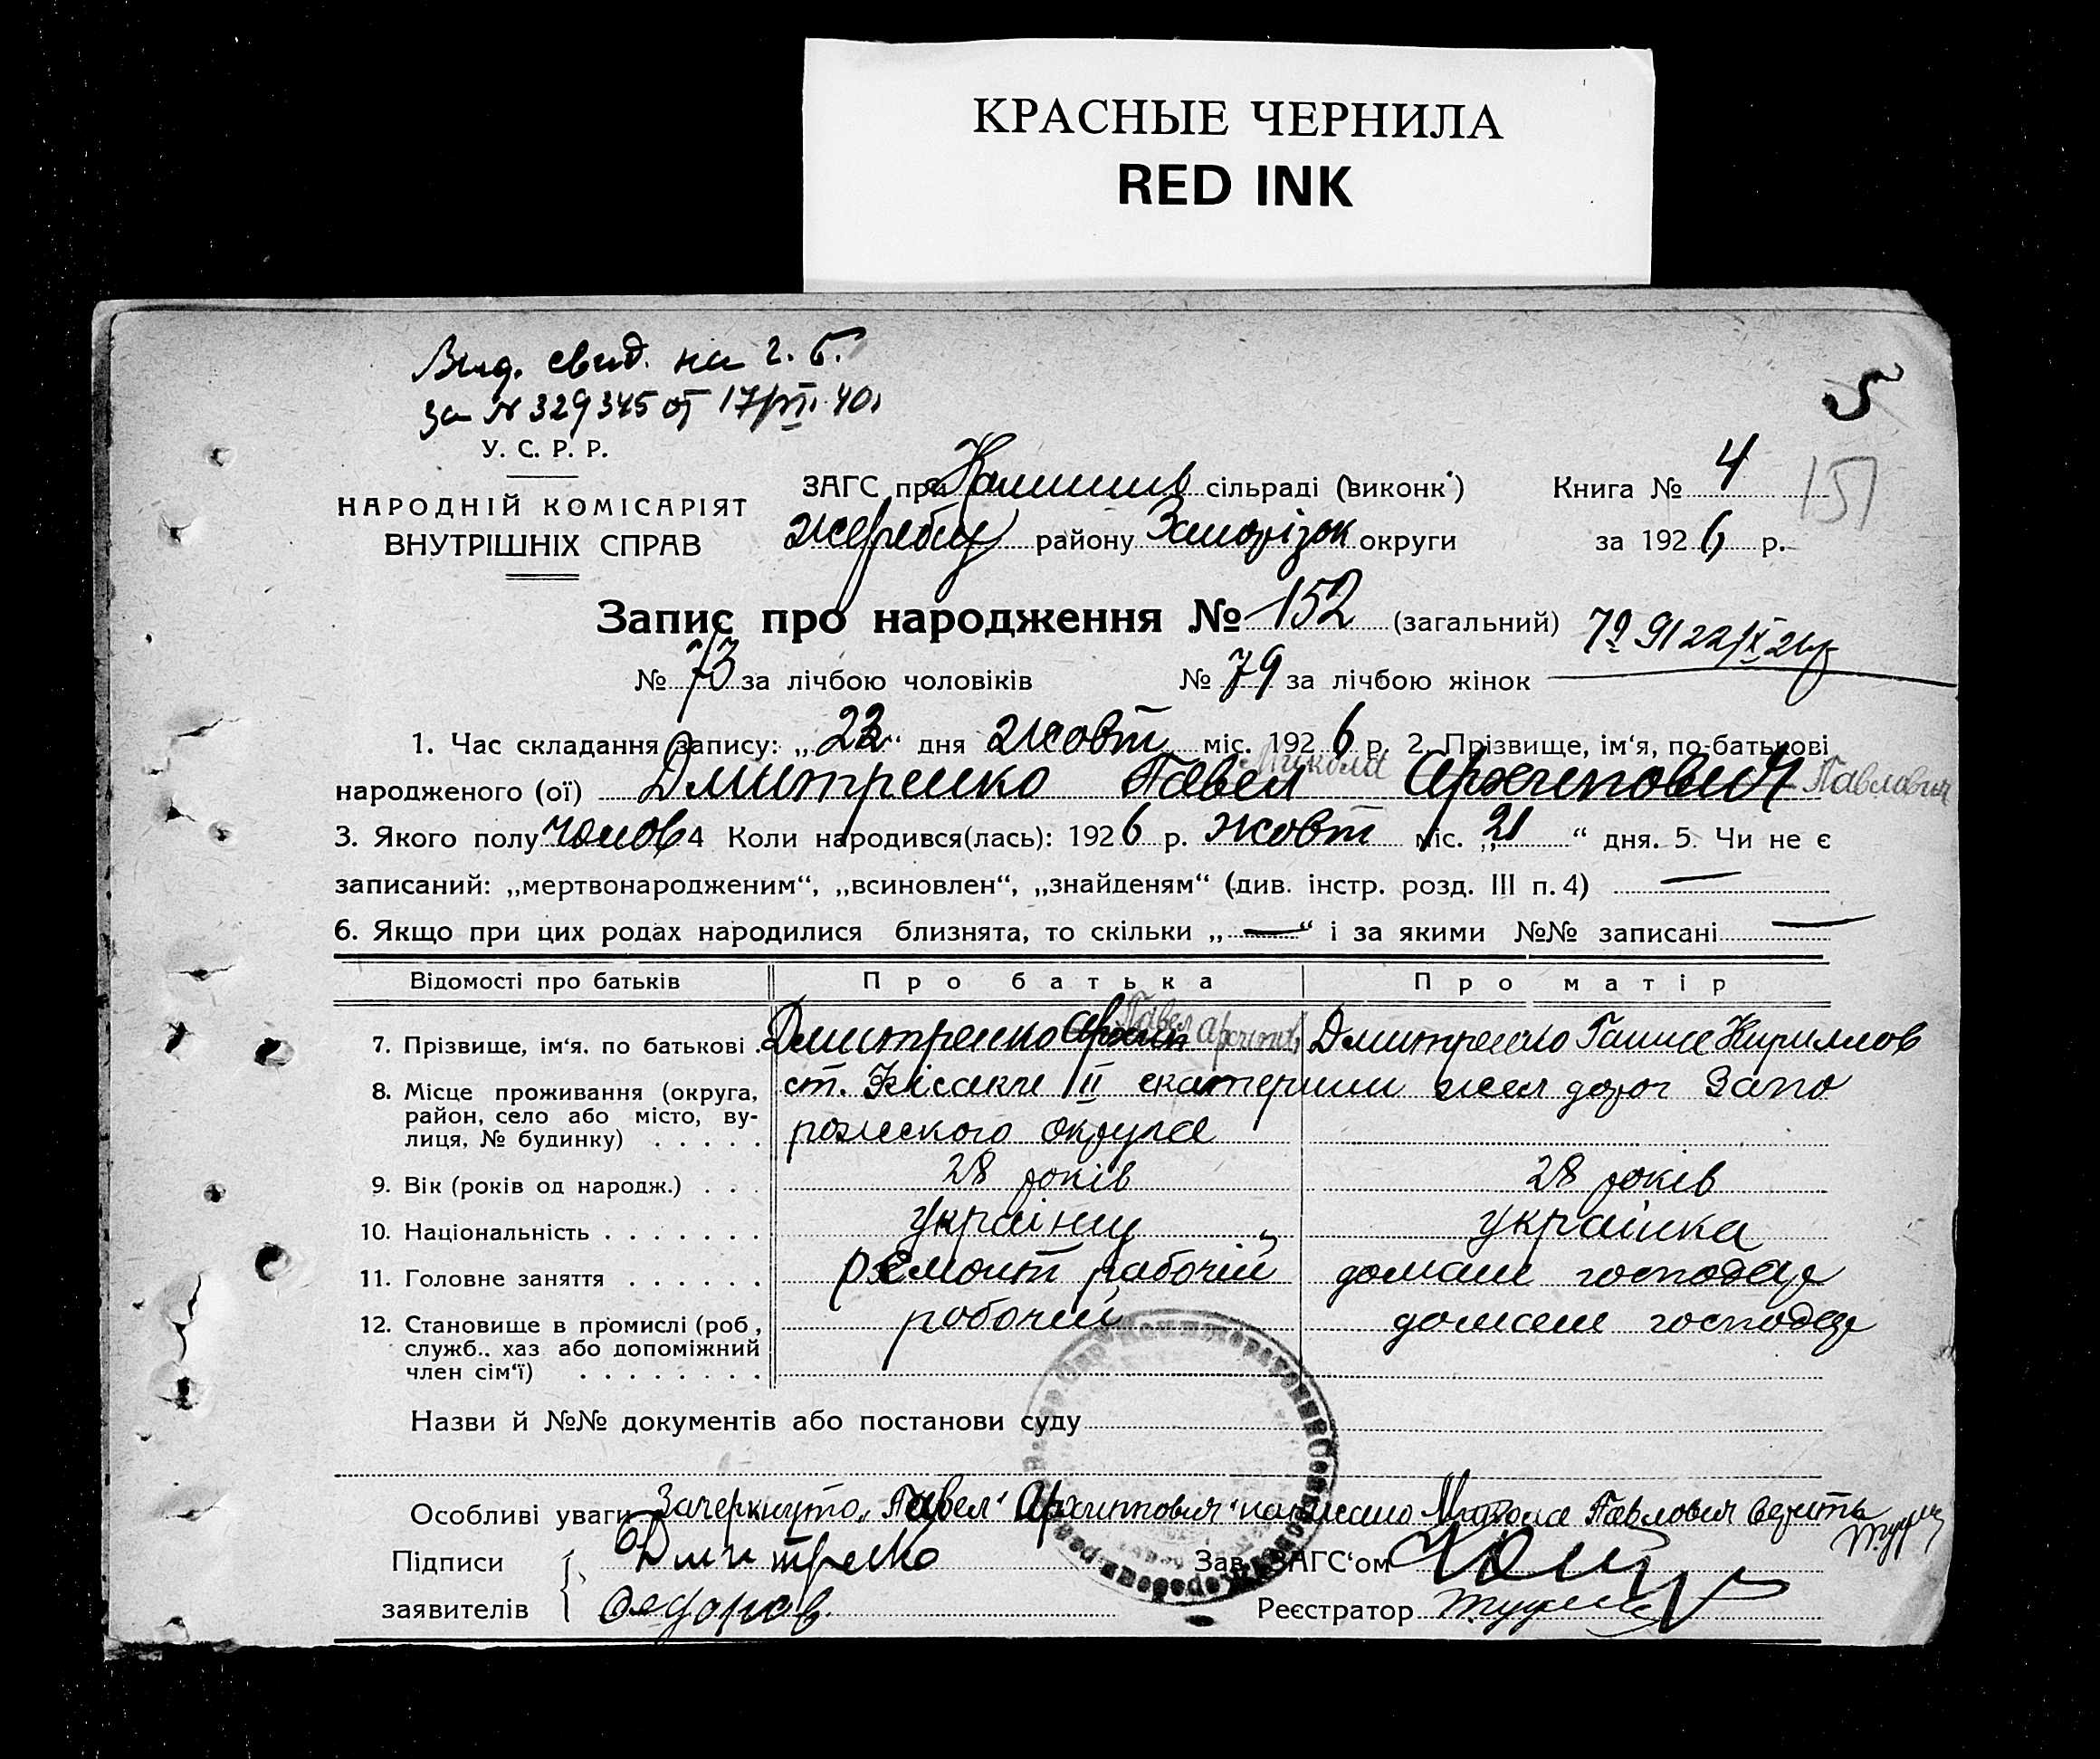 КРАСНЫЕ ЧЕРНИЛА
RED INK
Выд. свид. на г. б.
За N 329345 от 17/VII 40
5
У. С. Р. Р.
НАРОДНІЙ КОМІСАРІЯТ
ВНУТРІШНІХ СПРАВ
ЗАГС при сільраді (виконк.) Книга № 4
151
Жеребец району Запоріжок округи за 1926 р.
Запис про народження № 152 (загальний)
№ 73 за лічбою чоловіків № 79 за лічбою жінок
1. Час складання запису: „22“ дня Жовт міс. 1926 р. 2. Прізвище, ім‘я, по-батькові
народженого (ої) Дмитренко Павел Микола Архипович Павлович
3. Якого полу Чолов 4 Коли народився(лась): 1926 р. жовт міс. „21“ дня. 5. Чи не є
записаний: „мертвонародженим“, „всиновлен“, „знайденям“ (див. інстр. розд. III п. 4) —
6. Якщо при цих родах народилися близнята, то скільки „—“ і за якими №№ записані —
Відомості про батьків Про батька Про матір
7. Прізвище, ім‘я. по батькові . Дмитренко Архип Павел Архипов Дмитренко Ганна Кириллов
8. Місце проживання (округа, район, село або місто, вулиця, № будинку) . . . . . ст. Кісаки II екатеринин жел дорог Запо
рожского округа
9. Вік (років од народж.) . . . 28 років 28 років
10. Національність . . . . . . . українец українка
11. Головне заняття . . . . . . ремонт рабочій домаш господар
12. Становище в промислі (роб, служб.. хаз або допоміжний член сім‘ї) . . . . . . . . робочий домаш господар
Назви й №№ документів або постанови суду
Особливі уваги Зачеркнуто „Павел“ Архиппович написано Микола Павлович верить
Підписи Дмитренко Зав. ЗАГС‘ом
заявителів Федоров Реєстратор